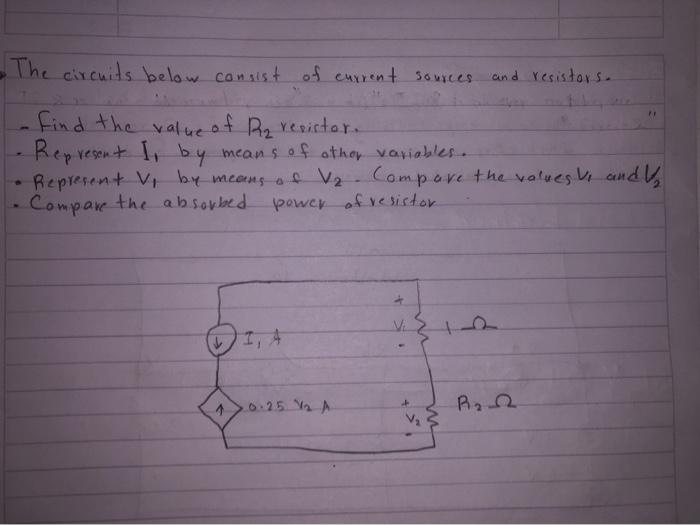 The circuits below consist of current sources and resistors.
- Find the value of R2 resistor.
• Represent I1 by means of other variables.
• Represent V1 by means of V2. Compare the values V1 and V2
• Compare the absorbed power of resistor
+
V1 1 Ω
-
I1 A
0.25 V2 A
+
V2 R2 Ω
-